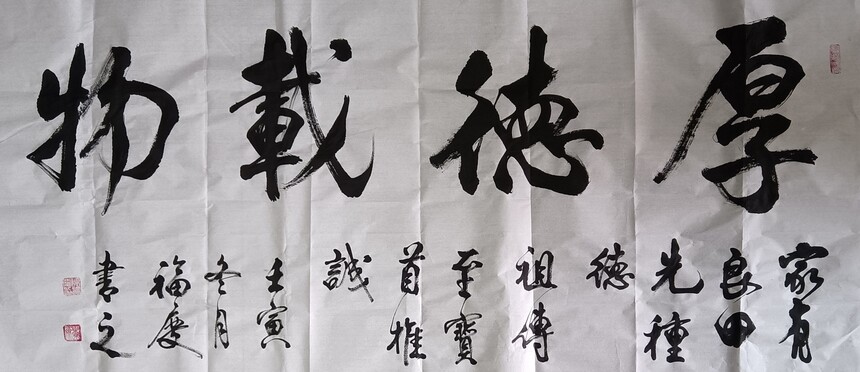 厚德載物
家有
良田
先種
德
祖傳
至寶
首推
誠
壬寅
冬月
福慶
書之